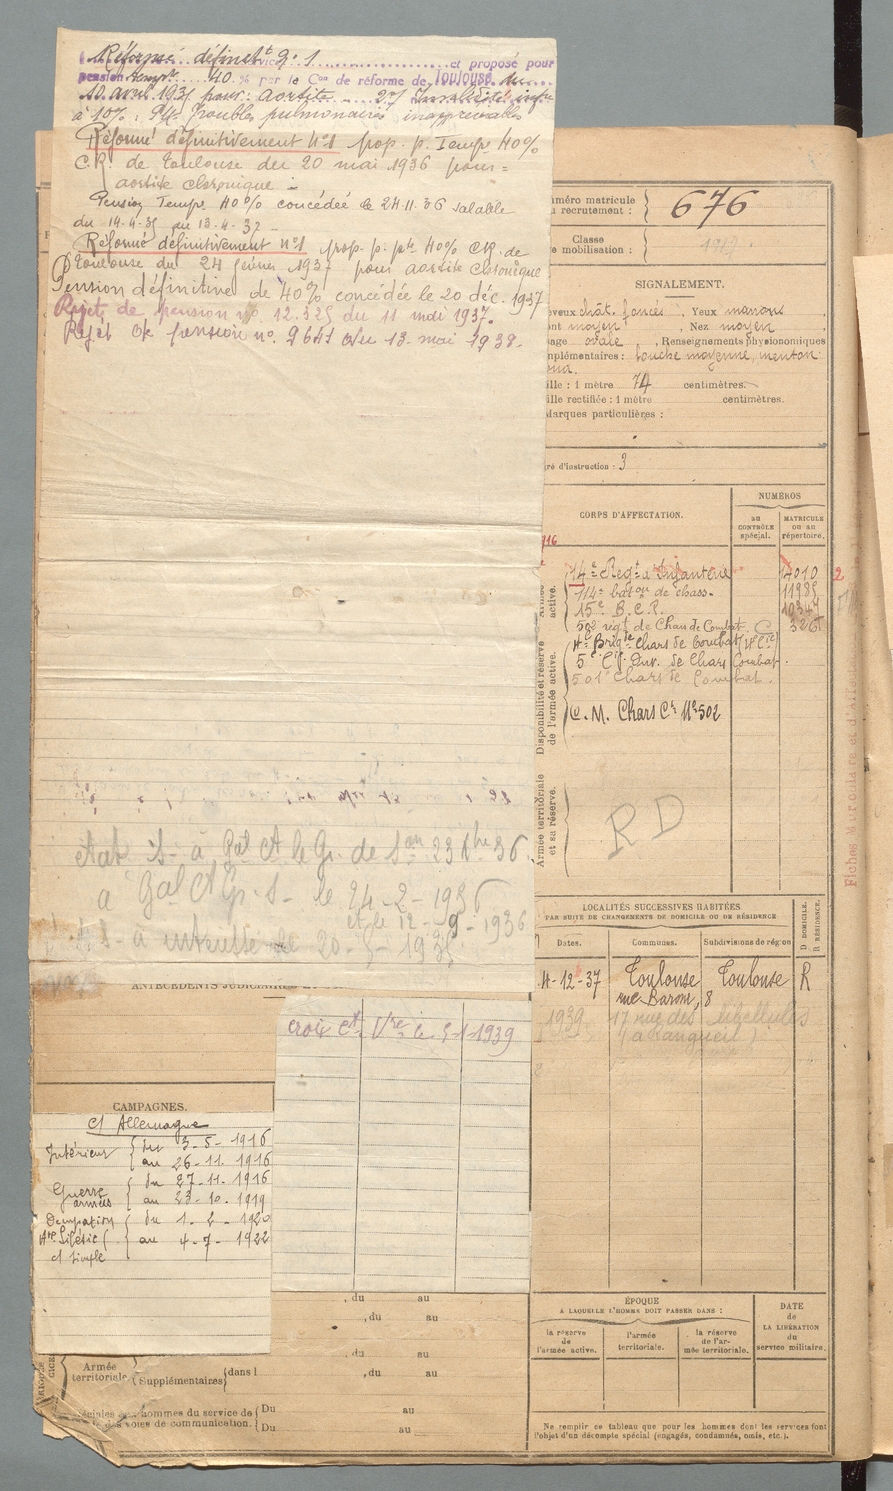 Réformé définitt n° 1 et proposé pour
pension tempre 40 % par la Con de réforme de Toulouse du
10 avril 1935 pour : aortite 2°/ Invalidité infre
à 10% : Troubles pulmonaires inappréciables
Réformé définitivement n°1 prop. p. Tempe 40%
C.R. de Toulouse du 20 mai 1936 pour =
aortite chronique =
Pension Tempe 40% concédée le 24.11.36 valable
du 14-4-35 au 13-4-37
Réformé définitivement n°1 prop. p. pte 40% CR. de
Toulouse du 24 février 1937 pour aortite chronique
Pension définitive de 40% concédée le 20 déc. 1937
Rejet de pension no. 12.325 du 11 mai 1937.
Rejet de pension no. 9641 du 13 mai 1938.
à Gal
le 24-2-1936
et le 12-9-1936
numéro matricule
recrutement :
676
Classe
de mobilisation :
SIGNALEMENT.
chât. foncés . Yeux marrons
moyen , Nez moyen
ovale , Renseignements physionomiques
complémentaires : bouche moyenne, menton
rond.
Taille : 1 mètre 74 centimètres.
Taille rectifiée : 1 mètre centimètres.
Marques particulières :
d'instruction : 3
CORPS D'AFFECTATION.
NUMÉROS
AU CONTRÔLE spécial.
MATRICULE OU AU répertoire.
14e Regt d'Infanterie 14010
114e baton de chass. 11985
15e B.C.P.
502 régt de Chars de Combat
4e Brigde Chars de Combat
5e Cie Chars Combat.
501e Chars de Combat.
C. M. Chars Ct N°502
Armée active.
Disponibilité et réserve de l'armée active.
Armée territoriale et sa réserve.
RD
LOCALITÉS SUCCESSIVES HABITÉES
PAR SUITE DE CHANGEMENTS DE DOMICILE OU DE RÉSIDENCE
Dates. Communes. Subdivisions de région
D DOMICILE. R RÉSIDENCE.
12-37 Toulouse Toulouse R
rue Baron, 8
1939 17 rue des libellules
(à Rangueil)
ANTÉCÉDENTS JUDICIAIRES
croix Ct Vre le 5-1-1939
CAMPAGNES.
Ct Allemagne
Intérieur { du 3-5-1916
au 26-11-1916
Guerre armées { du 27-11-1916
au 23-10-1919
Occupation { du 1-2-1920
Hte Silésie au 4-7-1922
Ct simple
, du au
,du au
Armée territoriale
,du au
Supplémentaires {dans l ,du au
hommes du service de {Du au
des voies de communication. {Du au
ÉPOQUE
À LAQUELLE L'HOMME DOIT PASSER DANS :
la réserve de l'armée active.
l'armée territoriale.
la réserve de l'armée territoriale.
DATE de LA LIBÉRATION du service militaire.
Ne remplir ce tableau que pour les hommes dont les services font
l'objet d'un décompte spécial (engagés, condamnés, omis, etc.).